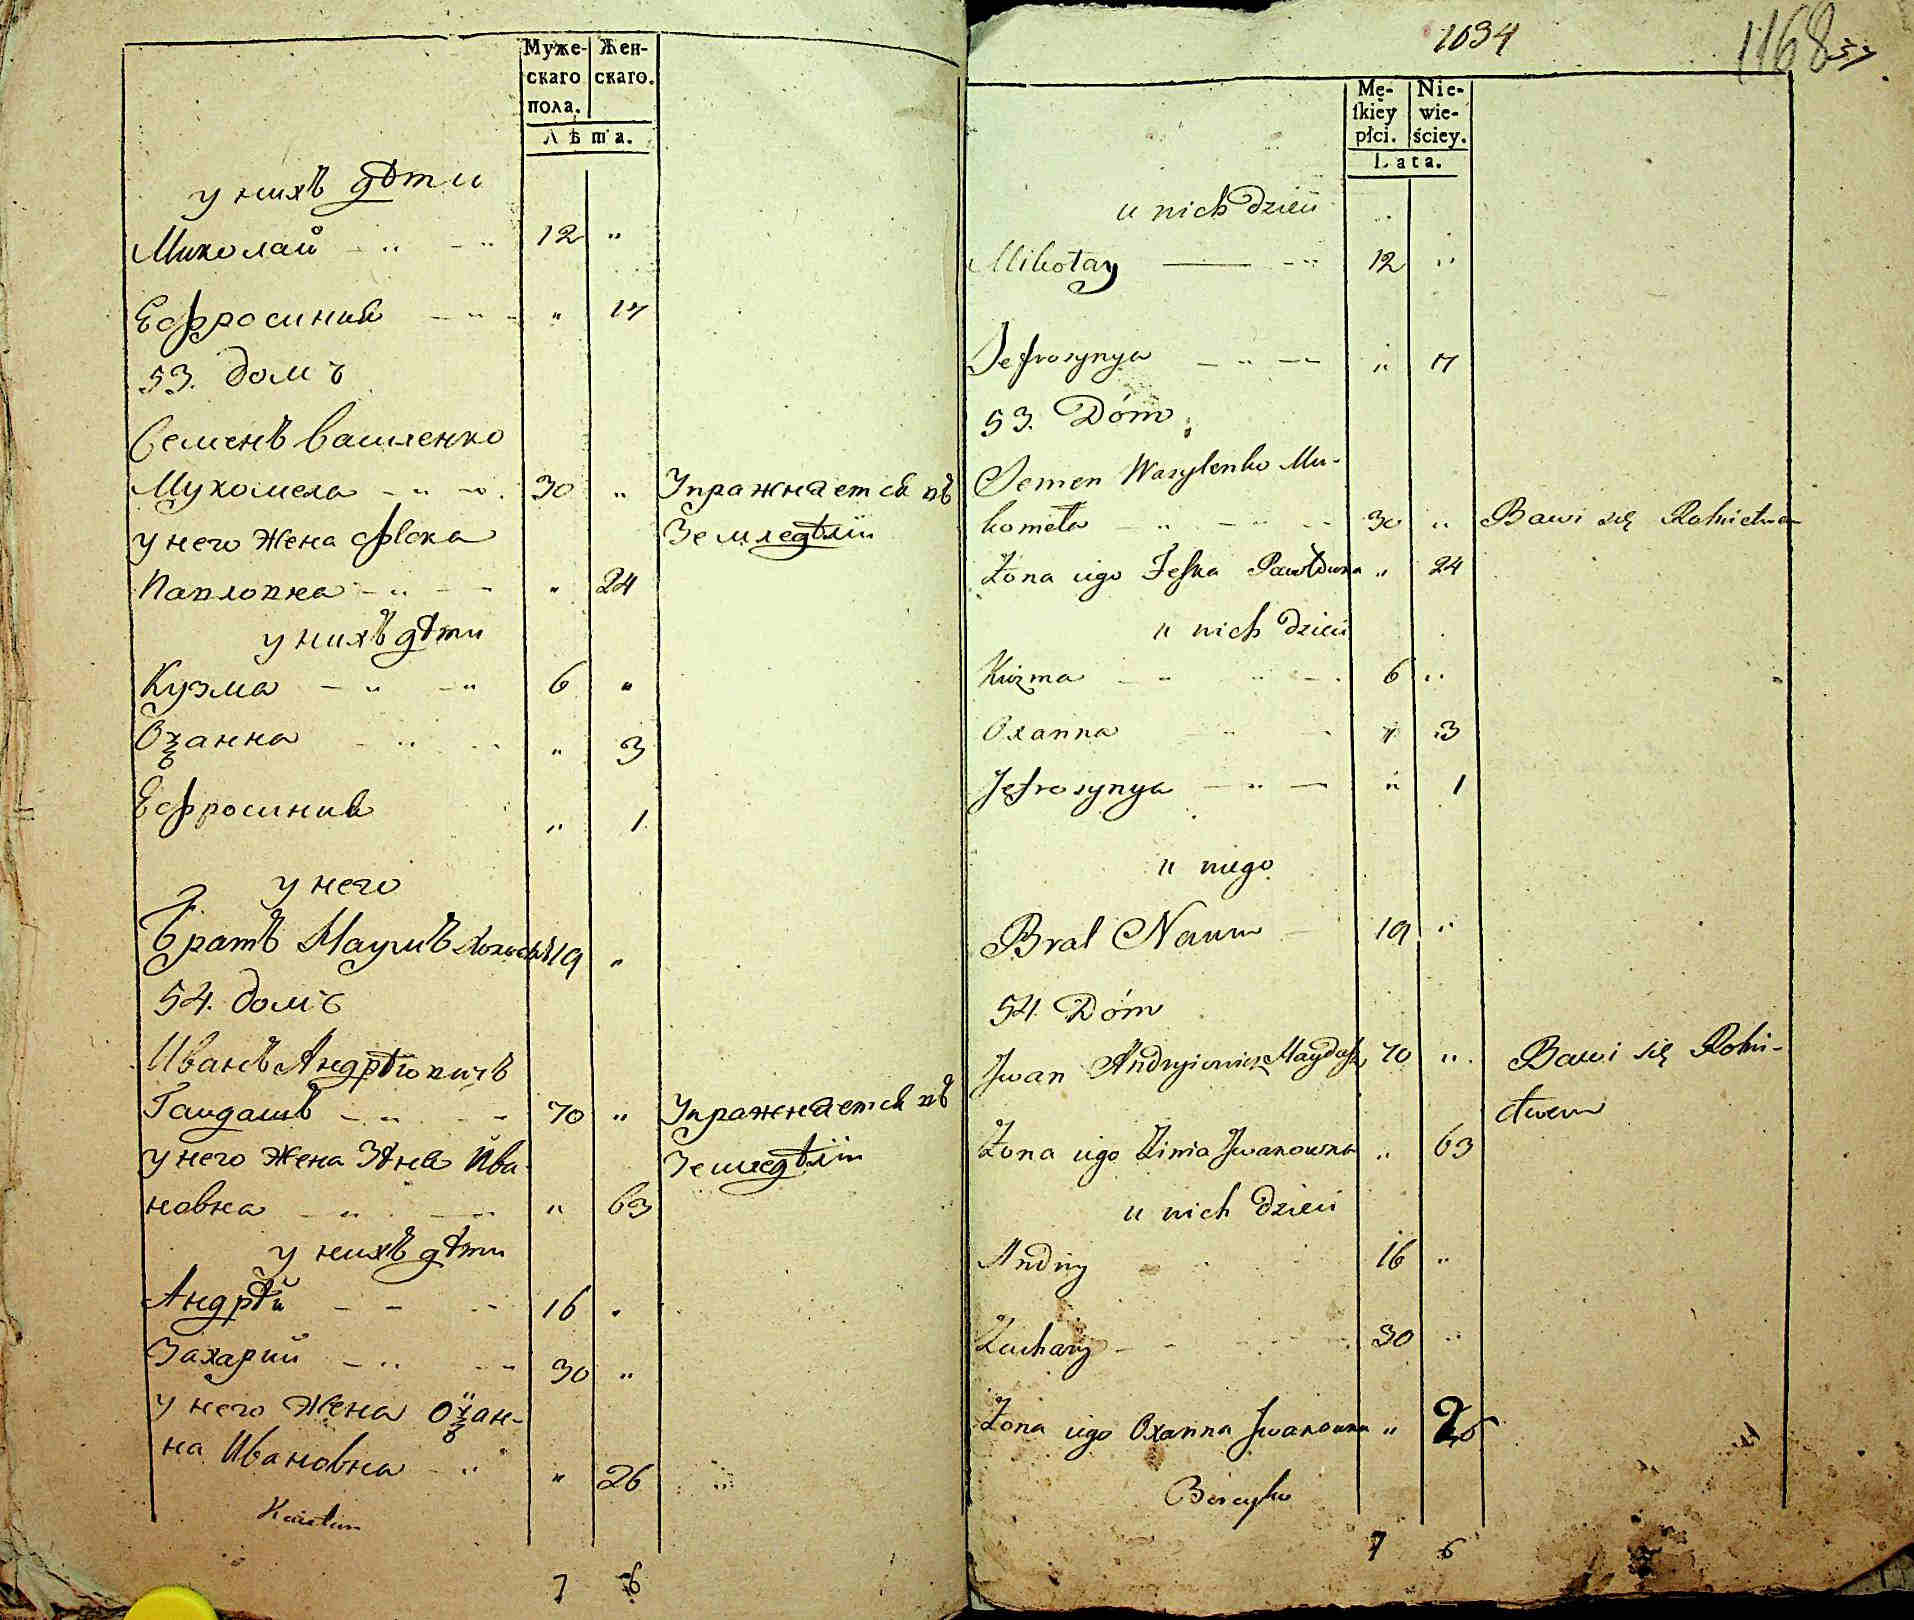 Муже-
скаго
пола.
Жен-
скаго.
Лѣта.
у нихъ дѣти
Миколай 12 "
Ефросинія " 17
53. домъ
Семенъ Василенко
Мухомела 30 " Упражняется въ
Земледѣліи
у него жена Фвска
Павловна " 24
у нихъ дѣти
Кузма 6 "
Оѯанна " 3
Ефросинія " 1
у него
братъ Наумъ холостъ 19 "
54. домъ
Иванъ Андрѣювичъ
Гайдашъ 70 " Упражняется въ
Земледѣліи
у него жена Зѣня Ива-
новна " 63
у нихъ дѣти
Андрѣй 16 "
Захарий 30 "
у него жена Оѯан-
на Ивановна " 26
7 6
1034
1168
57
Mę-
skiey
płci.
Nie-
wie-
ściey.
Lata.
u nich dzieci
Mikołay 12 "
Jefrosynya " 17
53. Dóm
Semen Wasylenko Mu-
komeła 30 " Bawi się Rolnictwem
Żona iego Feska Pawłowna " 24
u nich dzieci
Kuzma 6 "
Oxanna " 3
Jefrosynya " 1
u niego
Brat Naum 19 "
54. Dóm
Jwan Andryiewicz Haydasz 70 " Bawi się Rolni-
ctwem
Żona iego Zinia Jwanowna " 63
u nich dzieci
Andriy 16 "
Zachary 30 "
Żona iego Oxanna Jwanowna " 26
7 6